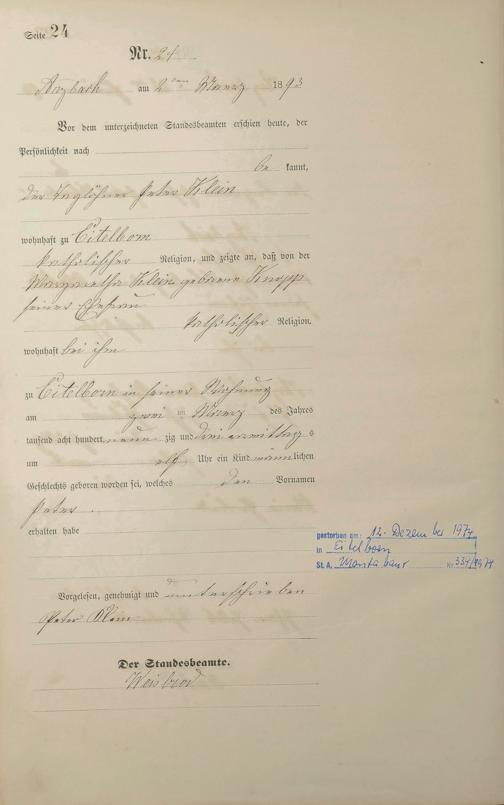 Seite 24
Nr. 24
Arzbach am 2ten Maerz 1893
Vor dem unterzeichneten Standesbeamten erschien heute, der
Persönlichkeit nach
be kannt,
der Taglöhner Peter Klein
wohnhaft zu Eitelborn
katholischer Religion, und zeigte an, daß von der
Margaretha Klein geborene Knopp
seiner Ehefrau
katholischer Religion,
wohnhaft bei ihm
zu Eitelborn in seiner Wohnung
am zwei ten Maerz des Jahres
tausend acht hundert neun zig und drei vormittags
um elf Uhr ein Kind männlichen
Geschlechts geboren worden sei, welches den Vornamen
Peter
erhalten habe
gestorben am: 12. Dezember 1974
in Eitelborn
St. A. Montabaur Nr. 334/1974
Vorgelesen, genehmigt und unterschrieben
Peter Klein
Der Standesbeamte.
Weisbrod